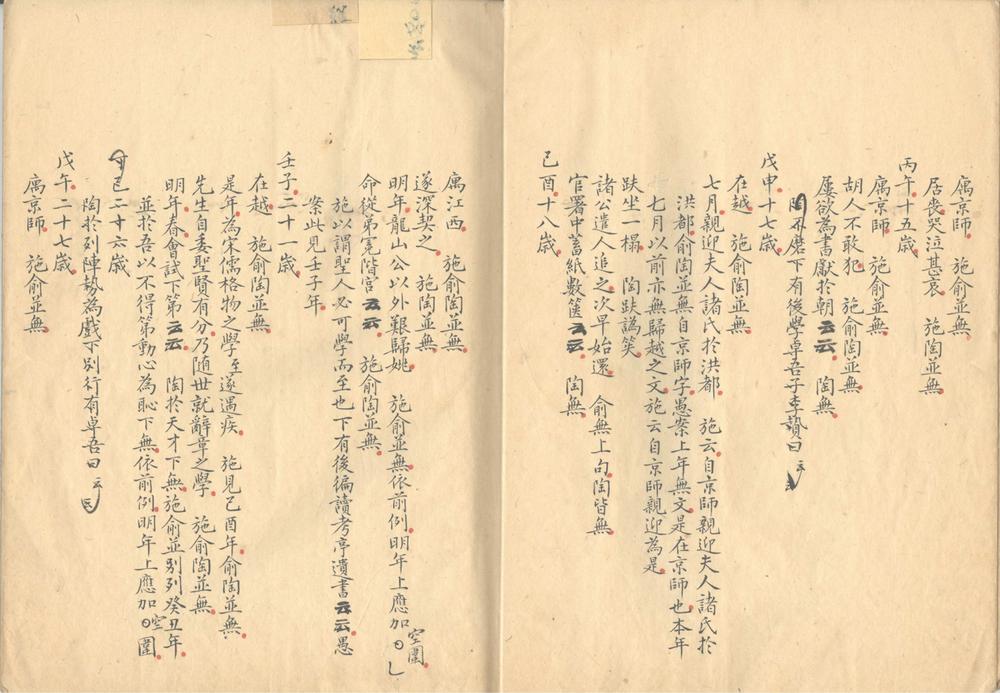 寓京師　施俞並無
居喪哭泣甚哀　施陶並無
丙午十五歲
寓京師　施俞陶並無
胡人不敢犯　施俞陶並無
屢欲為書獻於朝云云　陶無
陶不磨下有後學卓吾子李贄曰云云
戊申十七歲
在越　施俞陶並無
七月親迎夫人諸氏於洪都　施云自京師親迎夫人諸氏於
洪都俞陶並無自京師字愚案上年無文是在京師也本年
七月以前亦無歸越之文施云自京師親迎為是
趺坐一榻　陶趺譌笑
諸公遣人追之次早始還　俞無上句陶皆無
官署中蓄紙數篋云云　陶無
己酉十八歲
寓江西　施俞陶並無
遂深契之　施陶並無
明年龍山公以外艱歸姚　施俞並無依前例明年上應加○空圍
命從弟冕階宮云云　施俞陶並無
施以謂聖人必可學而至也下有後徧讀考亭遺書云云愚
案此見壬子年
壬子二十一歲
在越　施俞陶並無
是年為宋儒格物之學至遂遇疾　施見己酉年俞陶並無
先生自委聖賢有分乃隨世就辭章之學　施俞陶並無
明年春會試下第云云　陶於天才下無施俞並別列癸丑年
並於吾以不得第動心為恥下無依前例明年上應加○空圍
丁巳二十六歲
陶於列陣勢為戲下別行有卓吾曰云云
戊午二十七歲
寓京師　施俞並無